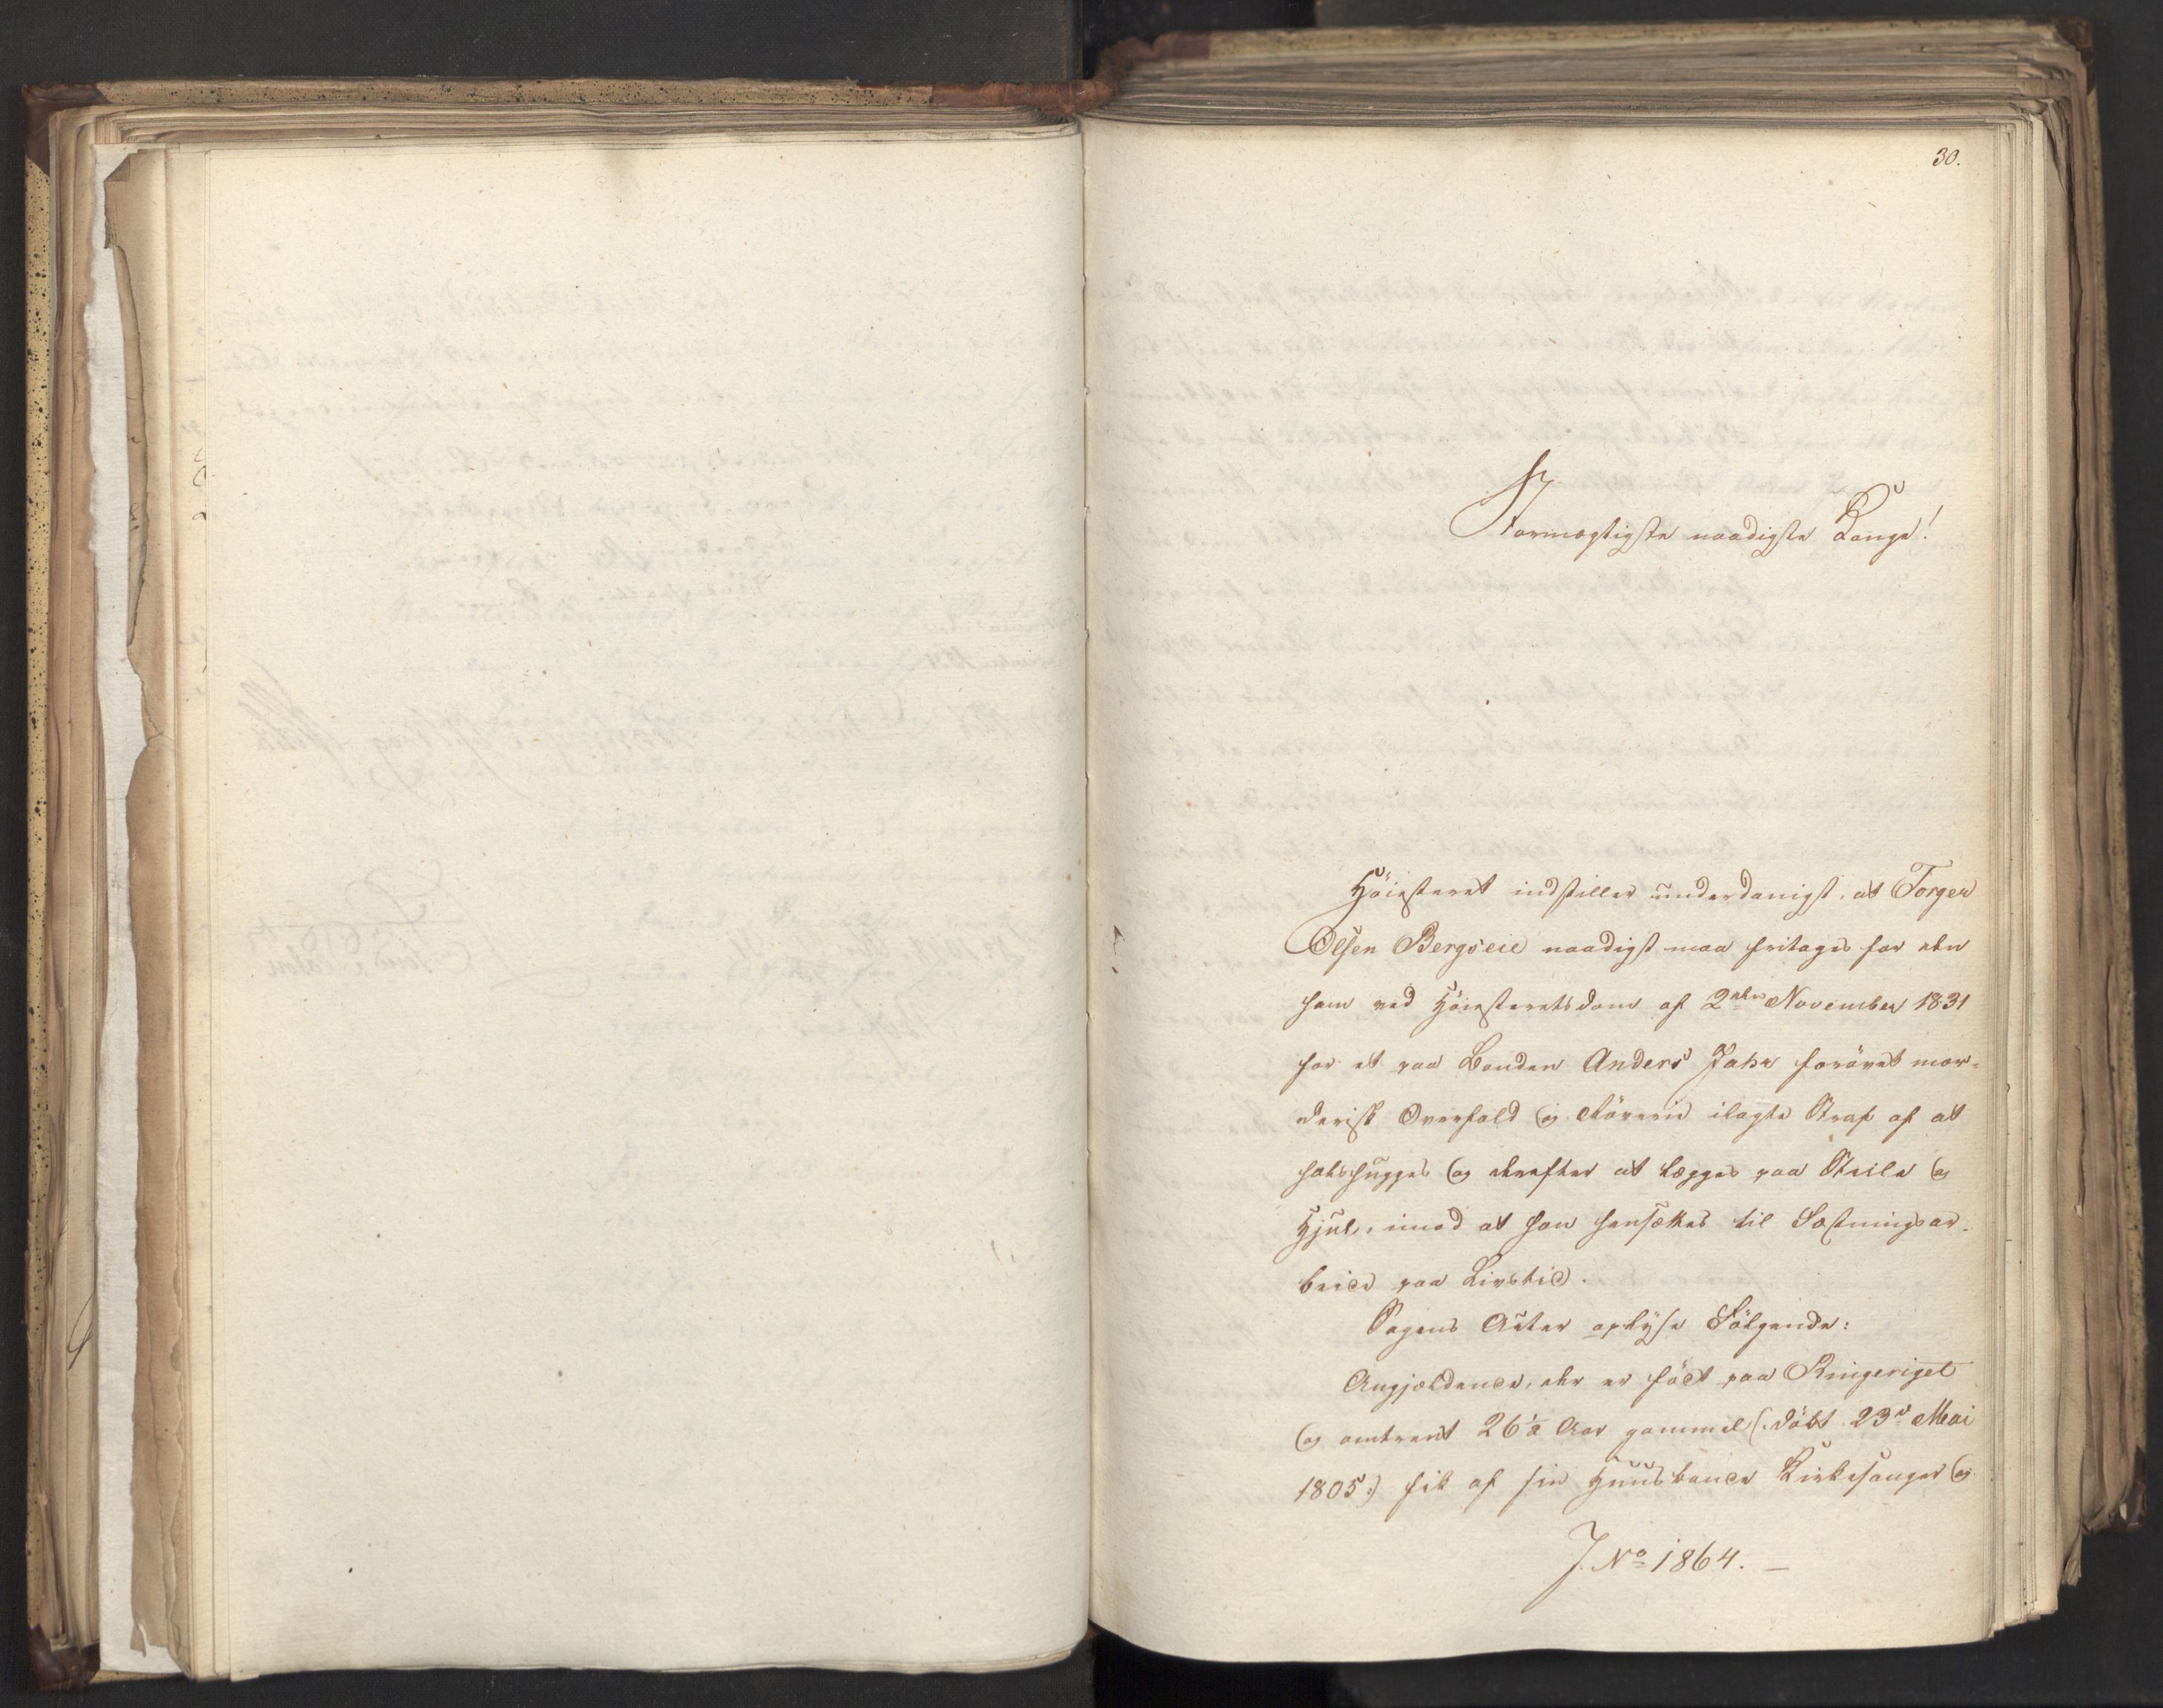 30.
Stormægtigste naadigste Konge!
Höiesteret indstiller underdanigst, at Torger
Olsen Bergseie naadigst maa fritages for den
ham ved Höiesteretsdom af 2den November 1831
for et paa Bonden Anders Jahr forövet mor-
derisk Overfald og Röverie ilagte Straf af at
halshugges og derefter at lægges paa Steile og
Hjul, imod at han hensættes til Fæstningsar-
beide paa Livstid.
Sagens Acter oplyse Fölgende:
Angjældende, der er föd paa Ringeriget
og omtrent 26½ Aar gammel (:döbt 23de Mai
1805:) fik af sin Huusbonde Kirkesanger og
J. No 1864. —